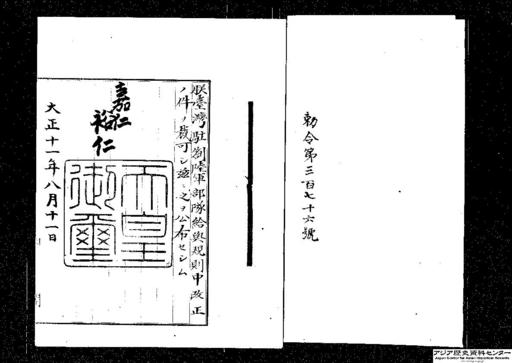 勅令第三百七十六號
朕臺灣駐剳陸軍部隊給與規則中改正
ノ件ヲ裁可シ玆ニ之ヲ公布セシム
嘉仁
裕仁
天皇御璽
大正十一年八月十一日
アジア歴史資料センター
Japan Center for Asian Historical Records